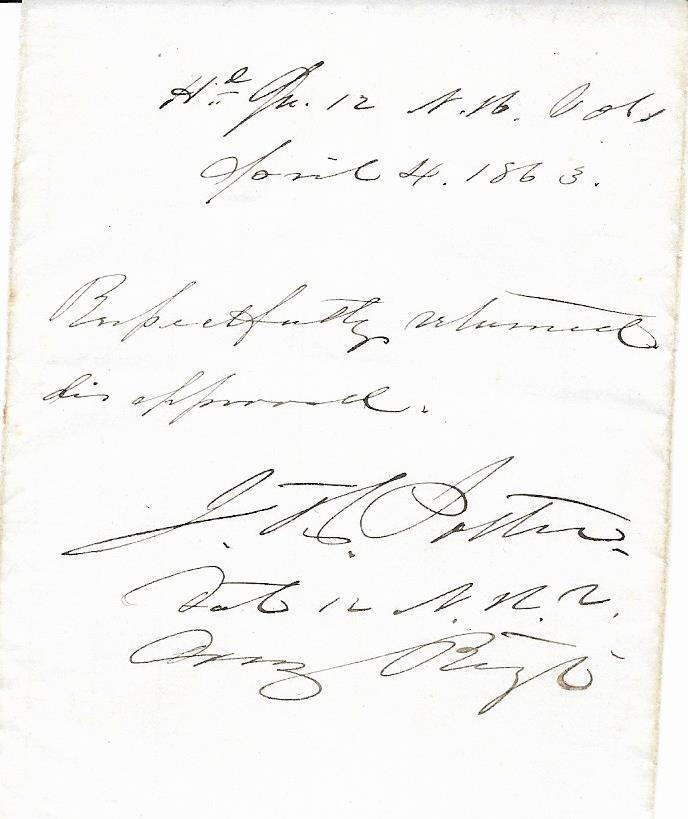 Hd Qu. 12 N.H. Vols
April 4. 1863.
Respectfully returned
disapproved.
J. H. Potter.
Col 12 N.H.V.
Comg Regt